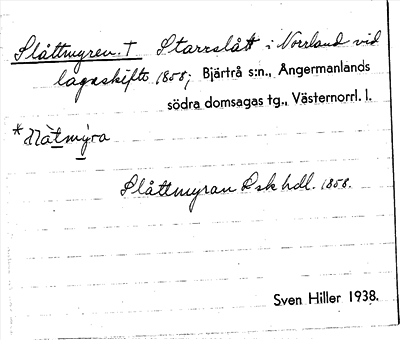 Slåttmyren. † Starrslått i Norrland vid
lagaskifte 1858; Bjärtrå s:n., Ångermanlands
södra domsagas tg., Västernorrl. l.
Slåttmyran Lsk hdl. 1858.
Sven Hiller 1938.